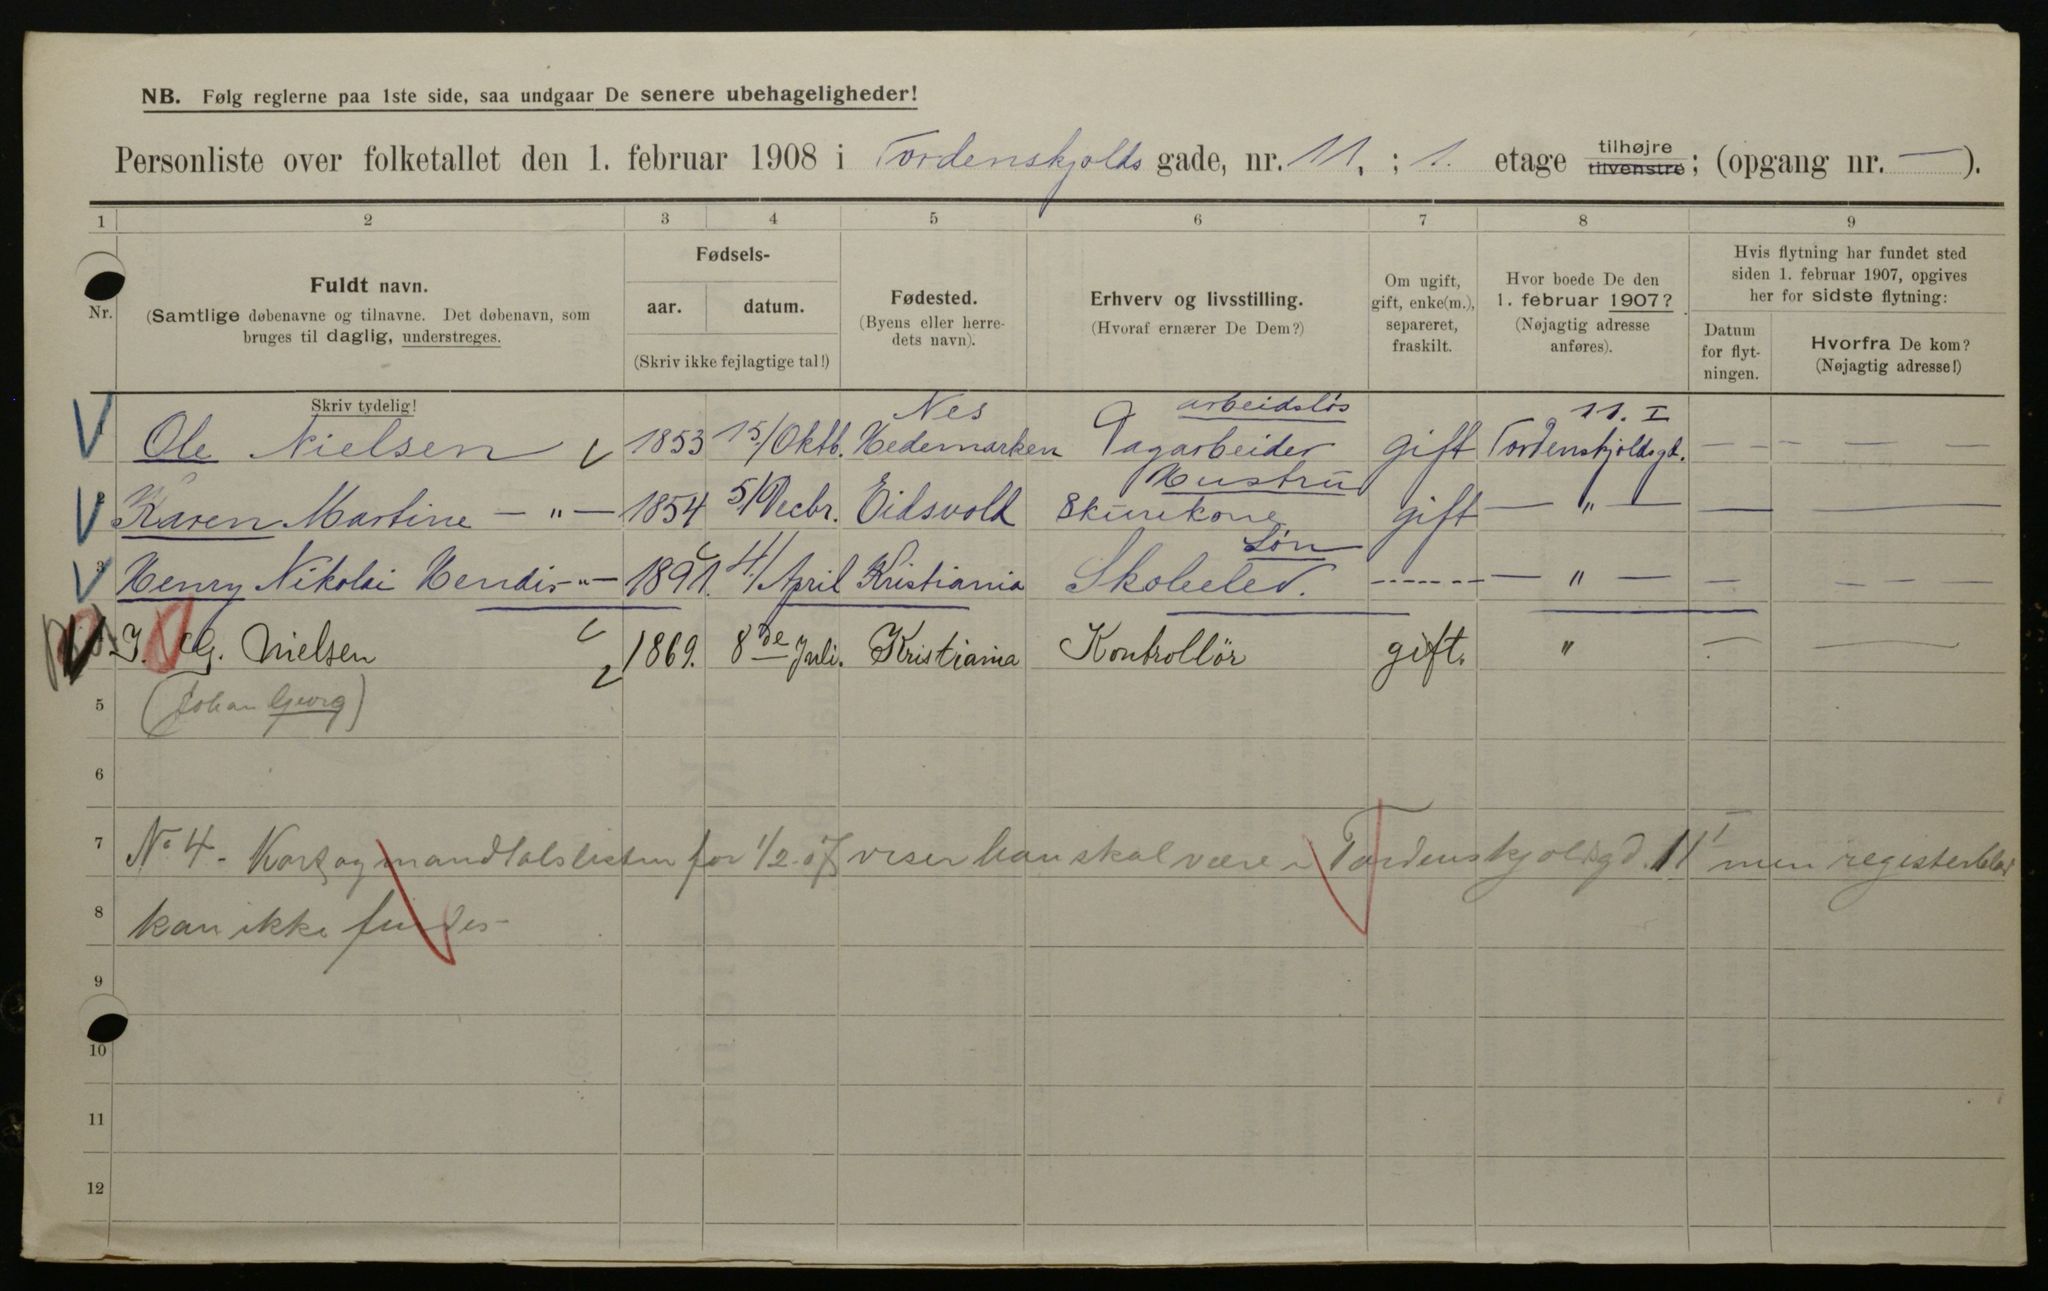 NB. Følg reglerne paa 1ste side, saa undgaar De senere ubehageligheder!
Personliste over folketallet den 1. februar 1908 i Tordenskjolds gade, nr. 11, ; 1. etage tilhøjre tilvenstre; (opgang nr. — ).
1 2 3 4 5 6 7 8 9
Nr.
Fuldt navn.
(Samtlige døbenavne og tilnavne. Det døbenavn, som
bruges til daglig, understreges.
Skriv tydelig!
Fødsels-
aar. datum.
(Skriv ikke fejlagtige tal!)
Fødested.
(Byens eller herre-
dets navn).
Erhverv og livsstilling.
(Hvoraf ernærer De Dem?)
Om ugift,
gift, enke(m.),
separeret,
fraskilt.
Hvor boede De den
1. februar 1907?
(Nøjagtig adresse
anføres).
Hvis flytning har fundet sted
siden 1. februar 1907, opgives
her for sidste flytning:
Datum
for flyt-
ningen.
Hvorfra De kom?
(Nøjagtig adresse!)
Nes arbeidsløs 11. I
Ole Nielsen 1853 15/Oktb. Hedemarken Dagarbeider gift Tordenskjoldsgd. — — — —
Hustru
Karen Martine — " — 1854 5/Decbr. Eidsvold Skurekone gift — " — — —
Søn
3 Henry Nikolai Hendir " — 1891. 4/April Kristiania Skoleelev. ------- — " — — — — —
J. G. Nielsen 1869. 8de Juli. Kristiania Kontrollör gift. " — —
5 (Johan Georg)
6
7 No 4 - Kort og mandtalslisten for 1/2 07 viser han skal være i Tordenskjoldsgd. 11 I men registerblad
8 kan ikke findes -
9
10
11
12